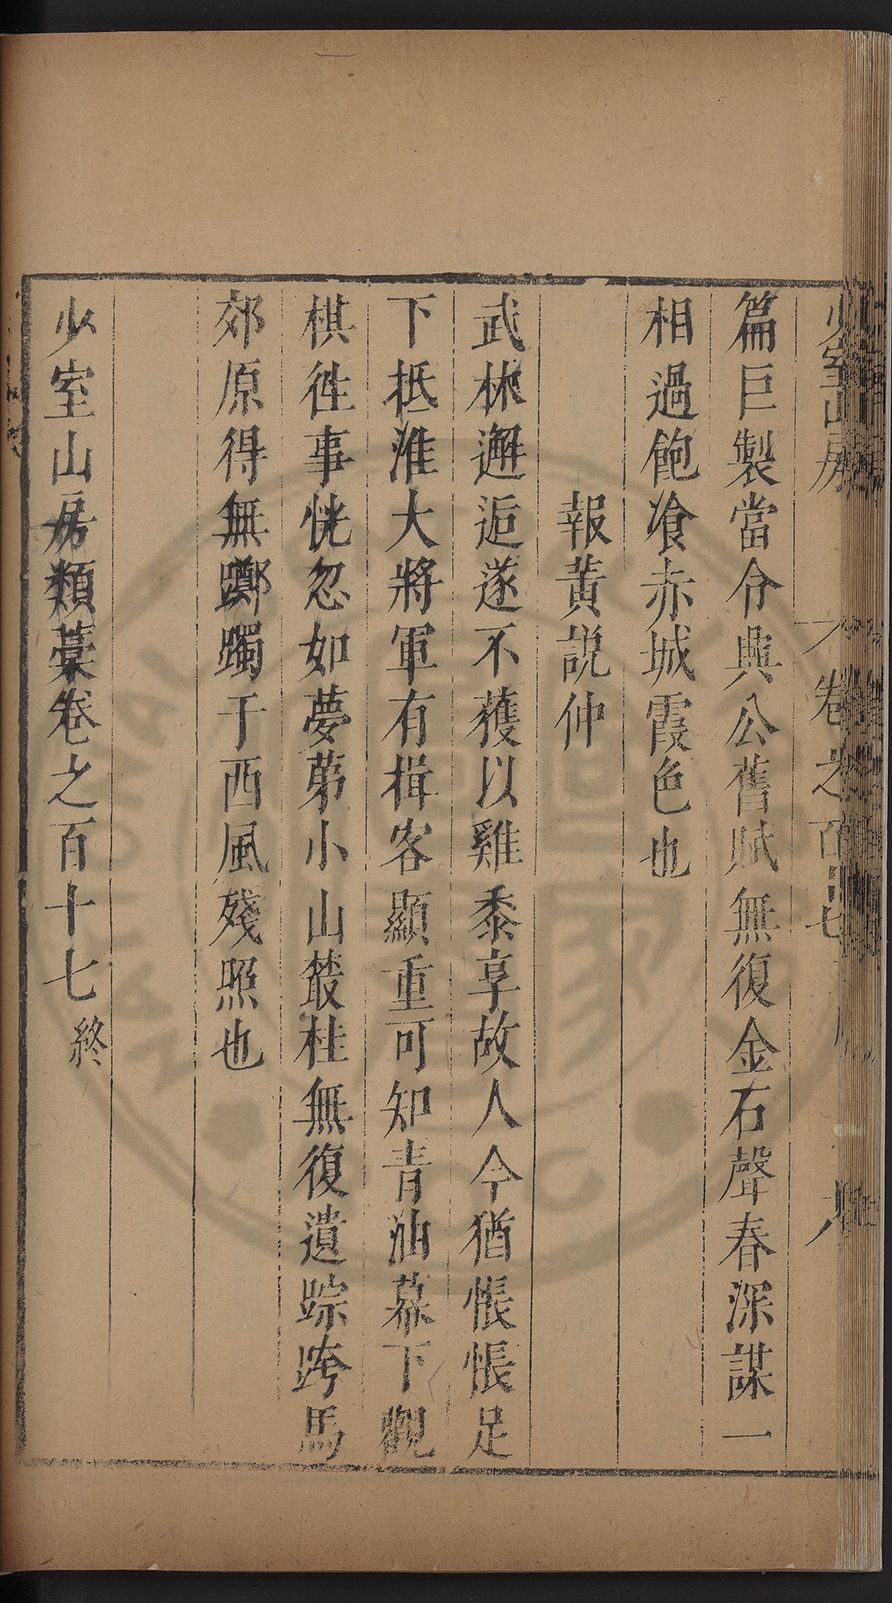 少室山房 卷之百十七
篇巨製當令興公舊賦無復金石聲春深謀一
相過飽飡赤城霞色也
報黃説仲
武林邂逅遂不獲以雞黍享故人今猶悵悵足
下抵淮大將軍有揖客顯重可知青油幕下觀
棋徃事恍忽如夢第小山叢桂無復遺踪跨馬
郊原得無躑躅于西風殘照也
少室山房類藁卷之百十七終